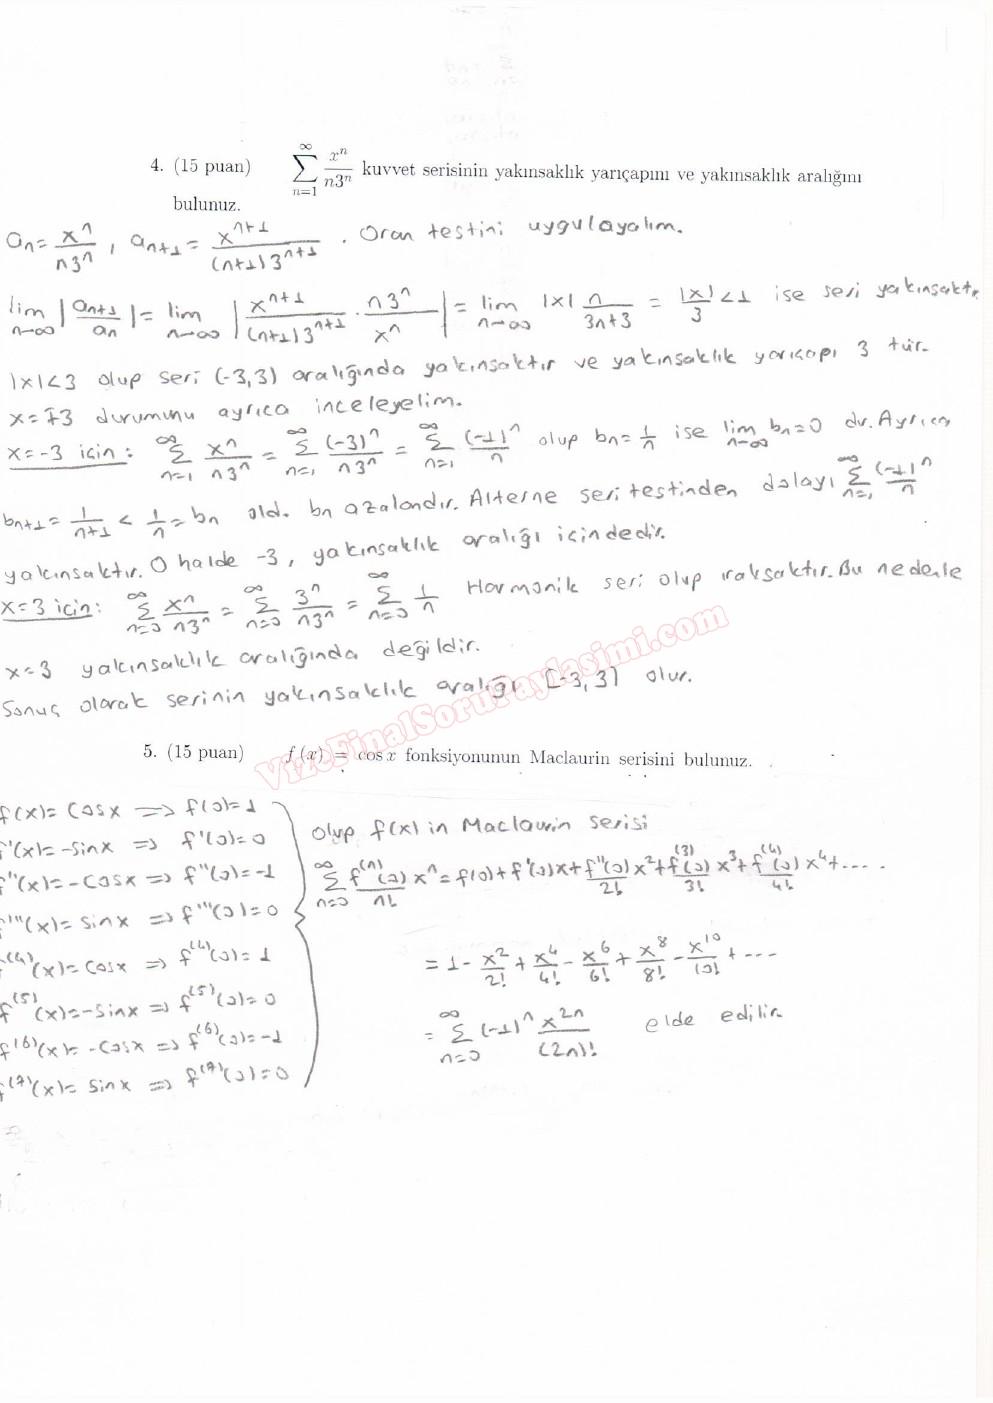 4. (15 puan) ∑_{n=1}^{∞} x^n/(n3^n) kuvvet serisinin yakınsaklık yarıçapını ve yakınsaklık aralığını
bulunuz.
a_n = x^n/(n3^n) , a_{n+1} = x^{n+1}/((n+1)3^{n+1}) . Oran testini uygulayalım.
lim_{n→∞} |a_{n+1}/a_n| = lim_{n→∞} |x^{n+1}/((n+1)3^{n+1}) · n3^n/x^n| = lim_{n→∞} |x| n/(3n+3) = |x|/3 < 1 ise seri yakınsaktır
|x|<3 olup seri (-3,3) aralığında yakınsaktır ve yakınsaklık yarıçapı 3 tür.
x=∓3 durumunu ayrıca inceleyelim.
x=-3 için: ∑_{n=1}^{∞} x^n/(n3^n) = ∑_{n=1}^{∞} (-3)^n/(n3^n) = ∑_{n=1}^{∞} (-1)^n/n olup b_n = 1/n ise lim_{n→∞} b_n = 0 dır. Ayrıca
b_{n+1} = 1/(n+1) < 1/n = b_n old. b_n azalandır. Alterne seri testinden dolayı ∑_{n=1}^{∞} (-1)^n/n
yakınsaktır. O halde -3, yakınsaklık aralığı içindedir.
x=3 için: ∑_{n=0}^{∞} x^n/(n3^n) = ∑_{n=0}^{∞} 3^n/(n3^n) = ∑_{n=0}^{∞} 1/n Harmonik seri olup ıraksaktır. Bu nedenle
x=3 yakınsaklık aralığında değildir.
Sonuç olarak serinin yakınsaklık aralığı [-3,3) olur.
VizeFinalSoruPaylasimi.com
5. (15 puan) f(x) = cos x fonksiyonunun Maclaurin serisini bulunuz.
f(x)= cosx => f(0)=1
f'(x)= -sinx => f'(0)=0
f''(x)= -cosx => f''(0)=-1
f'''(x)= sinx => f'''(0)=0
f^{(4)}(x)= cosx => f^{(4)}(0)=1
f^{(5)}(x)= -sinx => f^{(5)}(0)=0
f^{(6)}(x)= -cosx => f^{(6)}(0)=-1
f^{(7)}(x)= sinx => f^{(7)}(0)=0
olup f(x) in Maclaurin serisi
∑_{n=0}^{∞} f^{(n)}(0)/n! x^n = f(0)+f'(0)x+f''(0)/2! x^2+f^{(3)}(0)/3! x^3+f^{(4)}(0)/4! x^4+....
= 1 - x^2/2! + x^4/4! - x^6/6! + x^8/8! - x^{10}/10! + ...
= ∑_{n=0}^{∞} (-1)^n x^{2n}/(2n)! elde edilir.